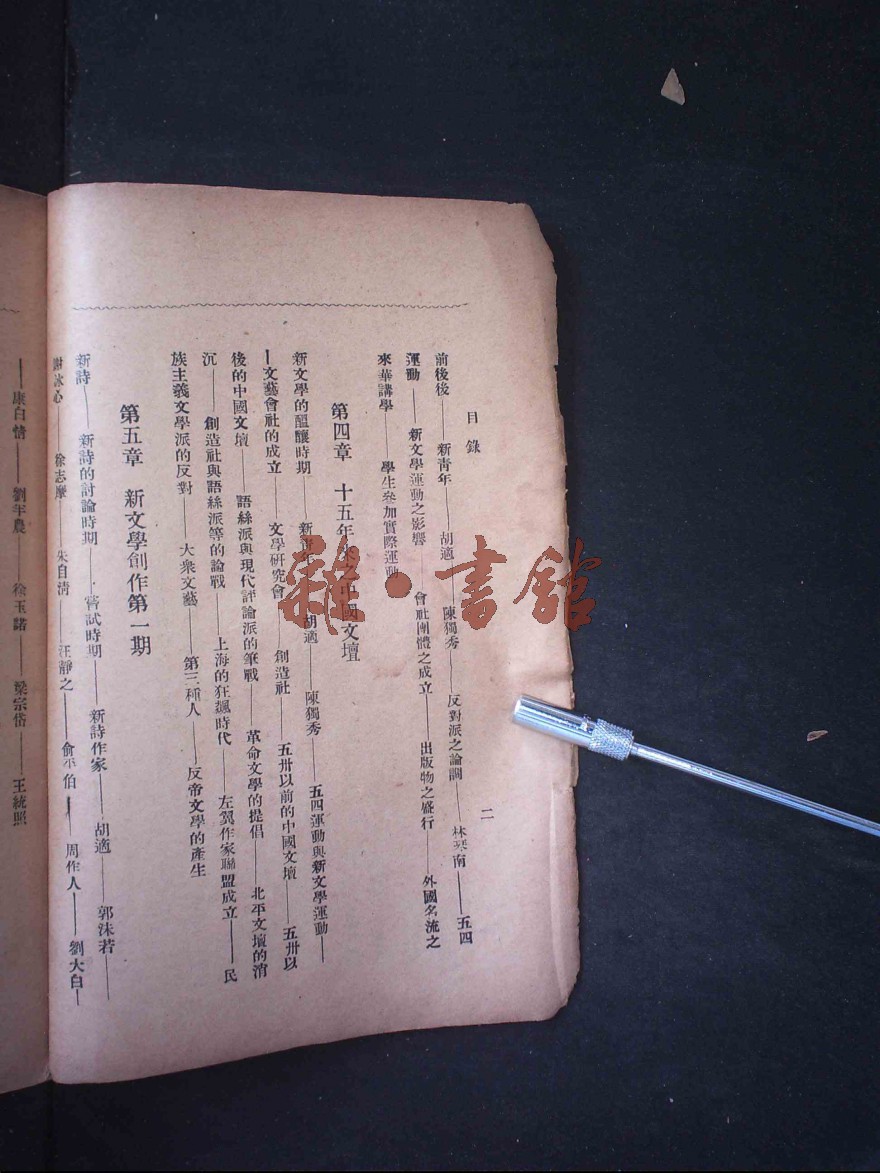 目錄
二
前後後——新青年——胡適——陳獨秀——反對派之論調——林琴南——五四
運動——新文學運動之影響——會社團體之成立——出版物之盛行——外國名流之
來華講學——學生參加實際運動
第四章 十五年來之中國文壇
新文學的醞釀時期——新青年——胡適——陳獨秀——五四運動與新文學運動——
—文藝會社的成立——文學研究會——創造社——五卅以前的中國文壇——五卅以
後的中國文壇——語絲派與現代評論派的筆戰——革命文學的提倡——北平文壇的消
沉——創造社與語絲派等的論戰——上海的狂飆時代——左翼作家聯盟成立——民
族主義文學派的反對——大衆文藝——第三種人——反帝文學的產生
第五章 新文學創作第一期
新詩——新詩的討論時期——嘗試時期——新詩作家——胡適——郭沫若——
謝冰心——徐志摩——朱自清——汪靜之——俞平伯——周作人——劉大白—
——康白情——劉半農——徐玉諾——梁宗岱 王統照
雜·書館